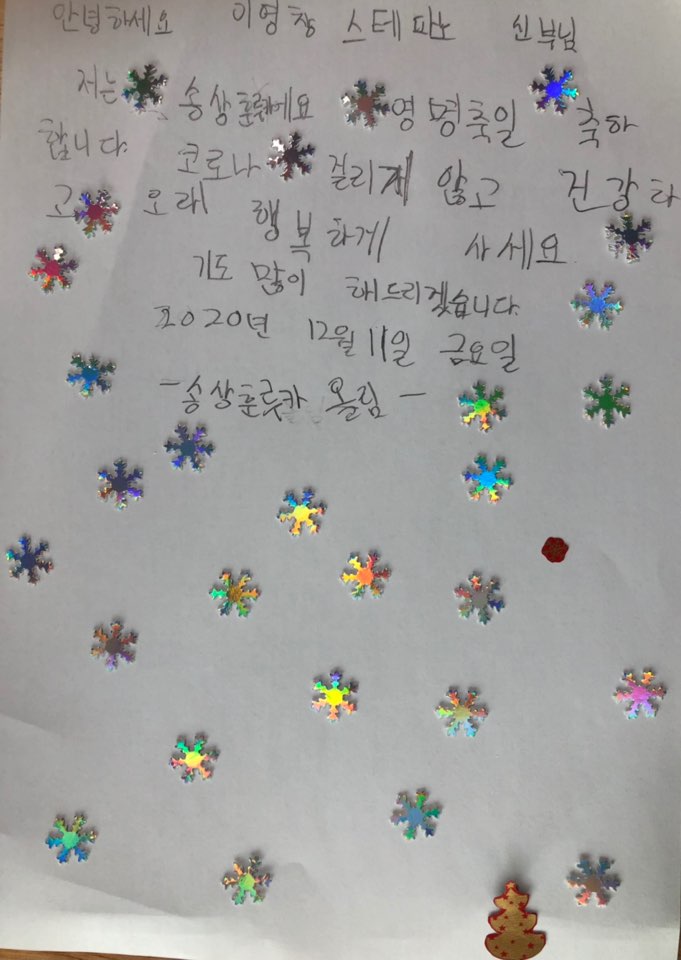 안녕하세요 이영창 스테파노 신부님
저는 송상훈이에요 영명축일 축하
합니다. 코로나 걸리지 않고 건강하
고 오래 행복하게 사세요.
기도 많이 해드리겠습니다.
2020년 12월 11일 금요일
-송상훈루카 올림-